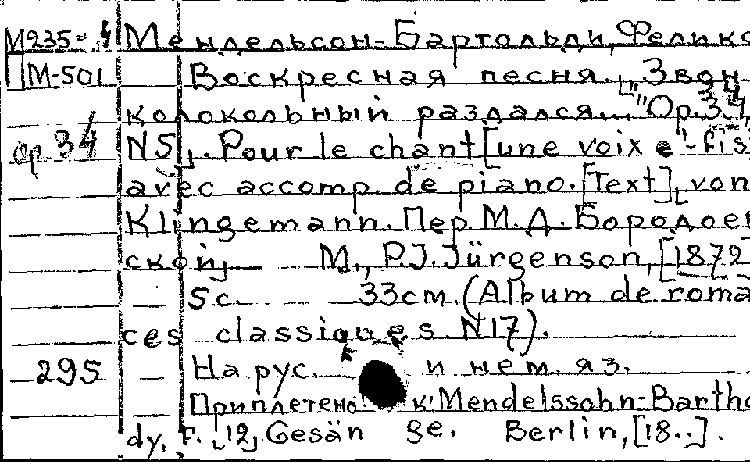 М235-4 Мендельсон-Бартольди, Феликс
М-501 Воскресная песня. „Звон
колокольный раздался..." Ор.34,
ор.34 N5,. Pour le chant [une voix e'-fis
avec accomp. de piano. [Text], von
Klingemann. Пер. М.Д. Бородоев
ской, М., P.J. Jürgenson, [1872
5 с. 33 см. (Album de roma
ces classiques N17).
295 На рус. и нем. яз.
Приплетено к: Mendelssohn-Bartho
dy, F. „12, Gesänge. Berlin, [18..].